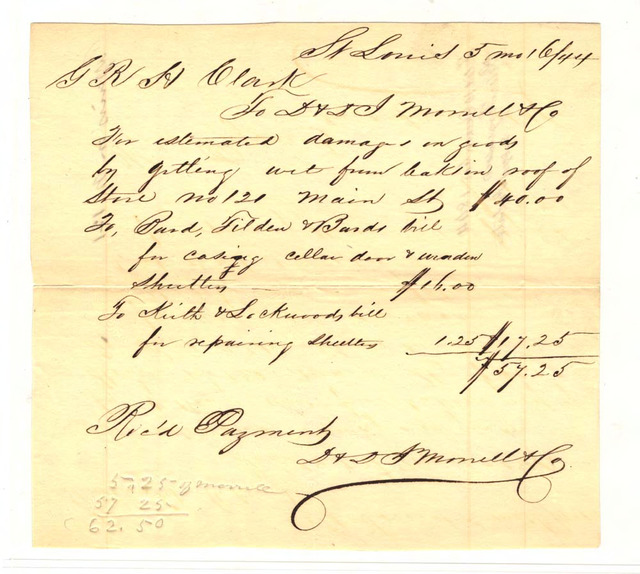 St Louis 5 mo 16/44
G R H Clark
To D & D J Morrell & Co
For estemated damages on goods
by gitting wet from leaks in roof of
Store no 121 Main St $40.00
To, Pard, Tilden & Bards bill
for casing cellar door & wooden
Shutters $16.00
To Keith & Lockwoods bill
for repairing Shutters 1.25 $17.25
$57.25
Rec'd Payment
D & D J Morrell & Co
5,25 Morrell
57 25
62.50